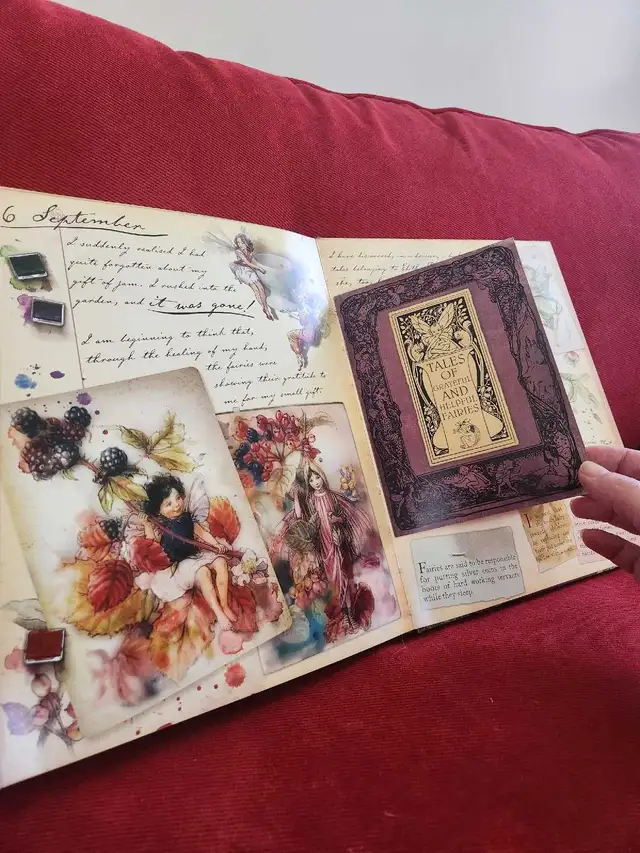 6 September
I suddenly realised I had
quite forgotten about my
gift of jam. I rushed into the
garden, and it was gone!
I am beginning to think that,
through the healing of my hand,
the fairies were
showing their gratitude to
me for my small gift.
I have
tales belonging to
she,
TALES
OF
GRATEFUL
AND
HELPFUL
FAIRIES
Fairies are said to be responsible
for putting silver coins in the
shoes of hard working servants
while they sleep.